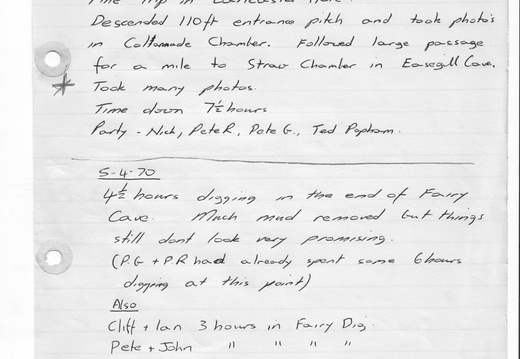 Fine Trip in Lancaster Hole.
Descended 110ft entrance pitch and took photos
in Collonnade Chamber. Followed large passage
for a mile to Straw Chamber in Easegill Cave.
Took many photos.
Time down 7½ hours
Party - Nick, Pete R, Pete G., Ted Popham.
5-4-70
4½ hours digging in the end of Fairy
Cave. Much mud removed but things
still dont look very promising.
(P.G + P.R had already spent some 6 hours
digging at this point)
Also
Cliff + Ian 3 hours in Fairy Dig.
Pete + John " " " "